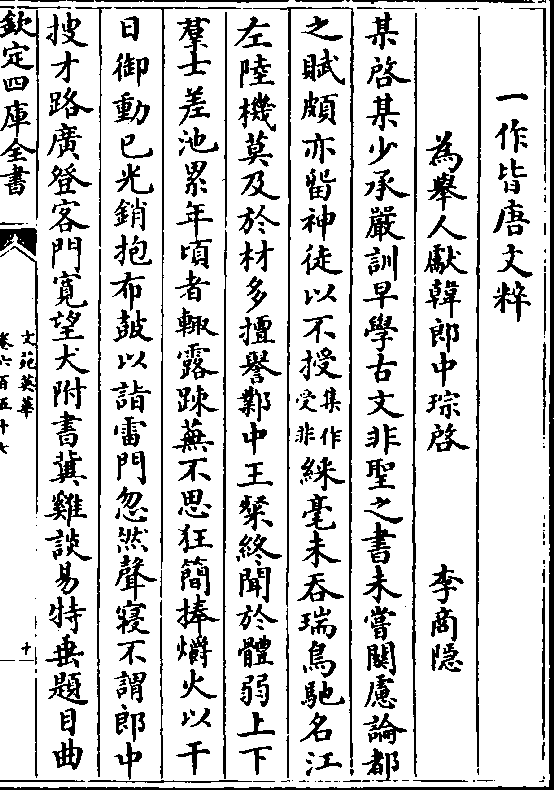 一作皆唐文粹
為舉人獻韓郎中琮啓 李商隠
某啓某少承嚴訓早學古文非聖之書未嘗關慮論都
之賦頗亦留神徒以不授集作受非綵毫未吞瑞鳥馳名江
左陸機莫及於材多擅譽鄴中王粲終聞於體弱上下
羣士差池累年頃者輙露踈蕪不思狂簡捧爝火以干
日御動已光銷抱布鼓以詣雷門忽然聲寢不謂郎中
搜才路廣登客門寛望犬附書冀雞談易特垂題目曲
欽定四庫全書
文苑英華
卷六百五十七
十